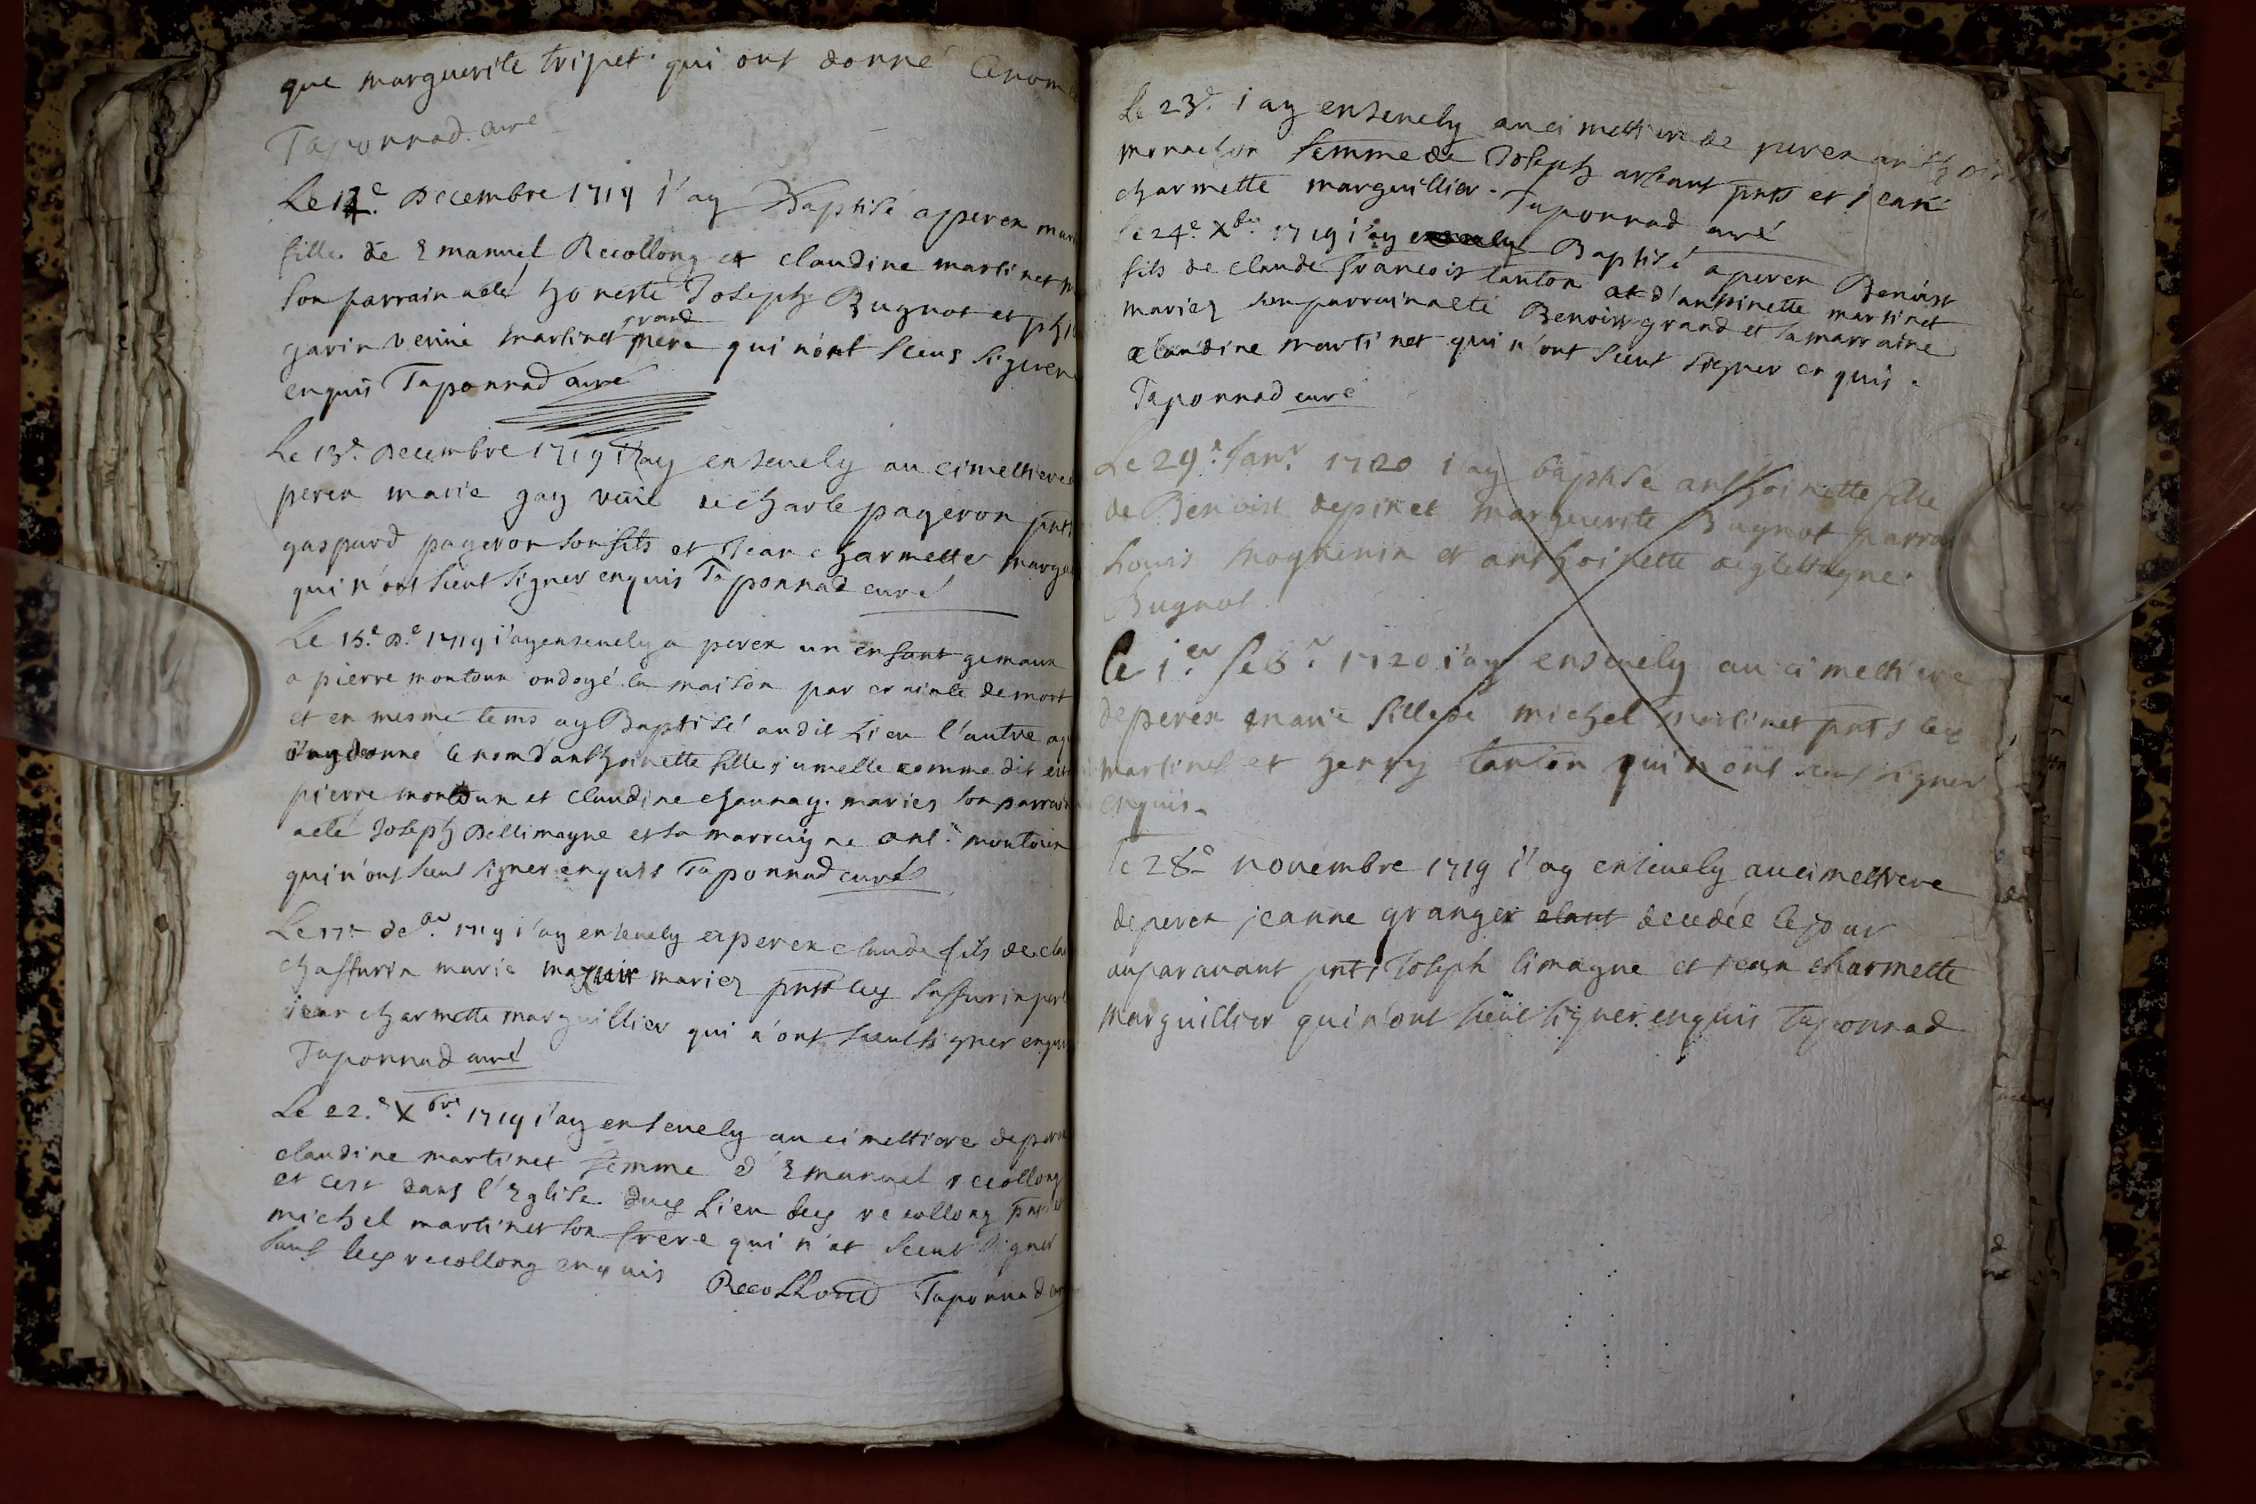 que marguerite tripet qui ont donné
Taponnad curé
Le 12e Decembre 1719 i'ay Baptisé a peren
fille de Emanuel Recollong et claudine martinet
son parrain a été honeste Joseph Bugnot et
garin veüue martinet grand mere qui n'ont sceus signer
enquis Taponnad curé
Le 13e Decembre 1719 i'ay enseuely au cimettiere
peren marie gay veüe de charle pageron pnts
gaspard pageron son fils et Jean charmette
qui n'ont sceut signer enquis Taponnad curé
Le 16e De 1719 i'ay enseuely a peren un enfant gemaux
a pierre montoun ondoyé la maison par crainte de mort
et en mesme tems ay Baptisé audit Lieu l'autre
i'ay donné le nom d'anthoinette fille jumelle comme dit
pierre montoun et claudine chaunay mariez son parrain
a ete Joseph Dellimagne et sa marraigne ant.e montoun
qui n'ont sceut signer enquis Taponnad curé
Le 17e 1719 i'ay enseuely a peren claude fils de
chaffurin marie mariez pnts
jean charmette marguillier qui n'ont sceut signer
Taponnad curé
Le 22.e Xbre 1719 i'ay enseuely au cimettiere de
claudine martinet femme d'Emanuel recollong
et cest dans l'Eglise dud Lieu led recollong
michel martinet son frere qui n'at sceut signer
sauf led recollong enquis Recollond Taponnad
Le 23e i'ay enseuely au cimettiere de peren
femme de Joseph pnts et jean
charmette marguillier Taponnad curé
le 24e Xbre 1719 i'ay enseuely Baptisé a peren Benoist
fils de claude francois tanton et d'anthoinette martinet
mariez son parrain a été Benoist grand et sa marraine
claudine martinet qui n'ont sceut signer enquis
Taponnad curé
Le 29e Janr 1720 i'ay baptisé anthoinette fille
de Benoist depinet marguerite Bugnot
Louis moghenin et anthoinette
Bugnot
Le 1er feb.r 1720 i'ay enseuely au cimettiere
de peren marie fille de michel martinet pnts
martinet et henry tanton qui n'ont sceut signer
enquis
le 28e novembre 1719 i'ay enseuely au cimettiere
de peren jeanne granger etant decedée le jour
auparauant pnts Joseph limagne et jean charmette
marguillier qui n'ont sceut signer enquis Taponnad